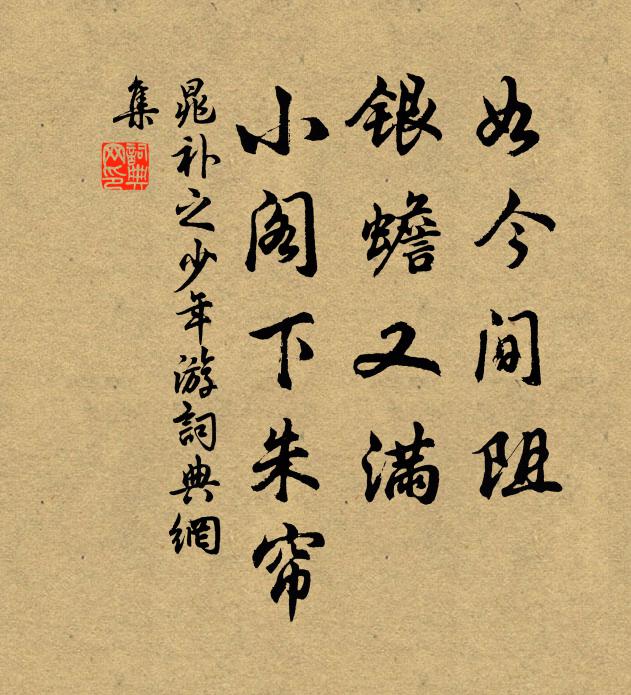 如今间阻
银蟾又满
小阁下朱帘
晁补之少年游詞典網
集
詞典
网印